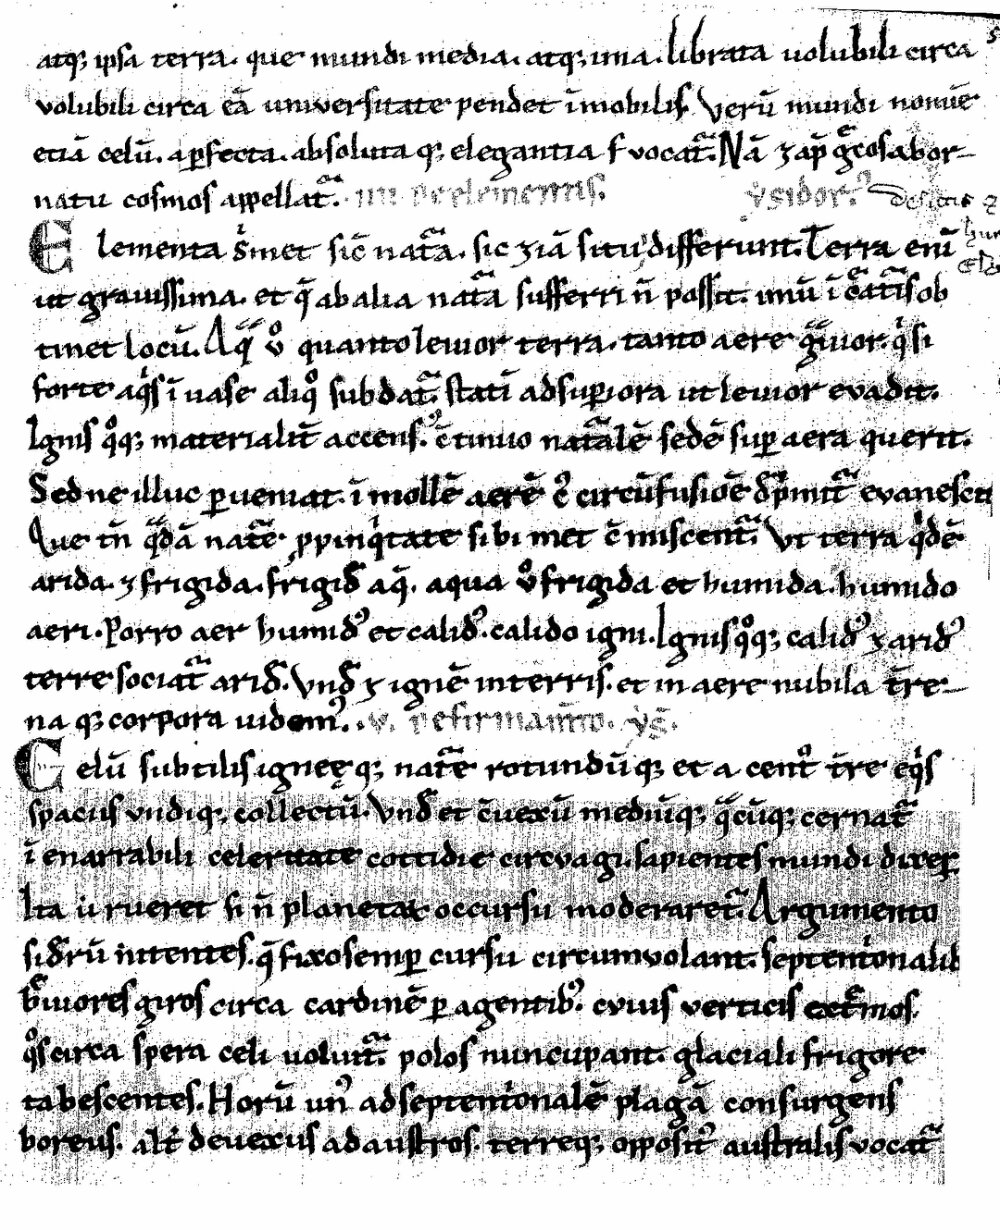 atq; ipsa terra. que mundi media. atq; ima. librata uolubili circa
volubili circa eā universitate pendet īmobilis. Verū mundi nomē
etiā celū. a ꝑfecta. absoluta q; elegantia vocat᷑. Nā ⁊ ap̄ gͤcos abor-
natu cosmos appellat᷑. IIII De elementis. ysidor᷒
Elementa sͥmet sic̄ natᷓa. sic ⁊iā situ differunt. Terra enī
ut grauissima. et q̄ ab alia natᷓa sufferri n̄ possit. imū ī cͤatᷓis ob
tinet locū. Aqᷓ u̾o quanto leuior terra. tanto aere gᷓuior. qͥ si
forte aq̄s ī uase aliqͦ subdat᷑. statī ad suꝑiora ut leuior evadit.
Ignis qͦq; materialit̄ accens᷒. c̄tinuo natᷓalē sedē suꝑ aera querit.
Sed ne illuc ꝑueniat. ī mollē aerē circūfusiōe dp̄mit᷑ evanescit
Que tn̄ qᷓdā natᷓe ꝓpinqͥtate sibi met c̄miscent᷑. Vt terra qͥdē
arida. ⁊ frigida. frigid̄ aq̄. aqua u̾ frigida et humida. humido
aeri. Porro aer humid᷒ et calid᷒. calido igni. Ignis qͦq; calid᷒ ⁊ arid᷒
terre sociat᷑ arid̄. Vnd̄ ⁊ ignē in terris. et in aere nubila t̄re-
na q; corpora uidem᷒. V. De firmam̄to. yẜ.
Celū subtilis igneę q; natᷓe rotundū q; et a centͦ t̄re eqͥs
spaciis vndiq; collectū. Vnd̄ et c̄uexū mediūq; qᷓcūq; cernat᷑
ī enarrabili celeritate cottidie circvagi. sapientes mundi dixeꝝ
Ita ū rueret si n̄ planetaꝝ occursu moderaret᷑. Argumento
sid̄rū nitentes. q̄ fixo semꝑ cursu circumvolant. septent̾onalib
bͤuiores giros circa cardinē ꝑagentib᷒. cvius verticis extͤmos.
qͦs circa sp̄era celi uoluit᷑. polos nuncupant. glaciali frigore
tabescentes. Horū un᷒ ad septentͥonalē plagā consurgens
boreus. alt̾ devexus ad austros. terreq; opposit᷒ australis vocat᷑